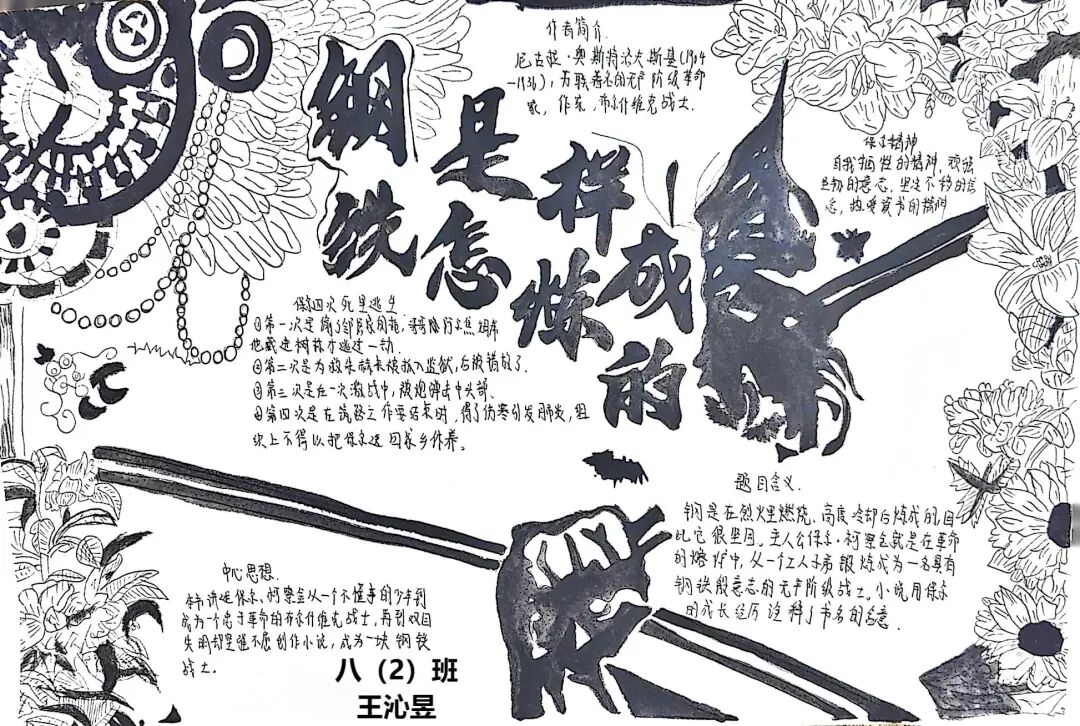 钢铁是怎样炼成的
作者简介
尼古拉·奥斯特洛夫斯基(1904
-1936),为联著名的无产阶级革命
家,作家,布尔什维克战士.
保尔精神
自我牺牲的精神,顽强
坚韧的意志,坚定不移的信
念,热爱读书的精神
保尔四次死里逃生
①第一次是
他藏进树林才逃过一劫
②第二次是为救朱赫来被抓入监狱,后被错放了.
③第三次是在一次激战中,被炮弹击中头部.
④第四次是在筑路工作要结束时,得了伤寒引发肺炎,组
织上不得以把保尔送回家乡休养。
题目含义.
钢是在烈火里燃烧、高度冷却后炼成的,因
此它很坚固.主人公保尔·柯察金就是在革命
的熔炉中,从一个工人子弟锻炼成为一名具有
钢铁般意志的无产阶级战士.小说用保尔
的成长经历诠释了书名的含意.
中心思想.
本书讲述保尔·柯察金从一个不懂事的少年到
成为一个忠于革命的布尔什维克战士,再到双目
失明却坚强不屈创作小说,成为一块钢铁
战士.
八（2）班
王沁昱